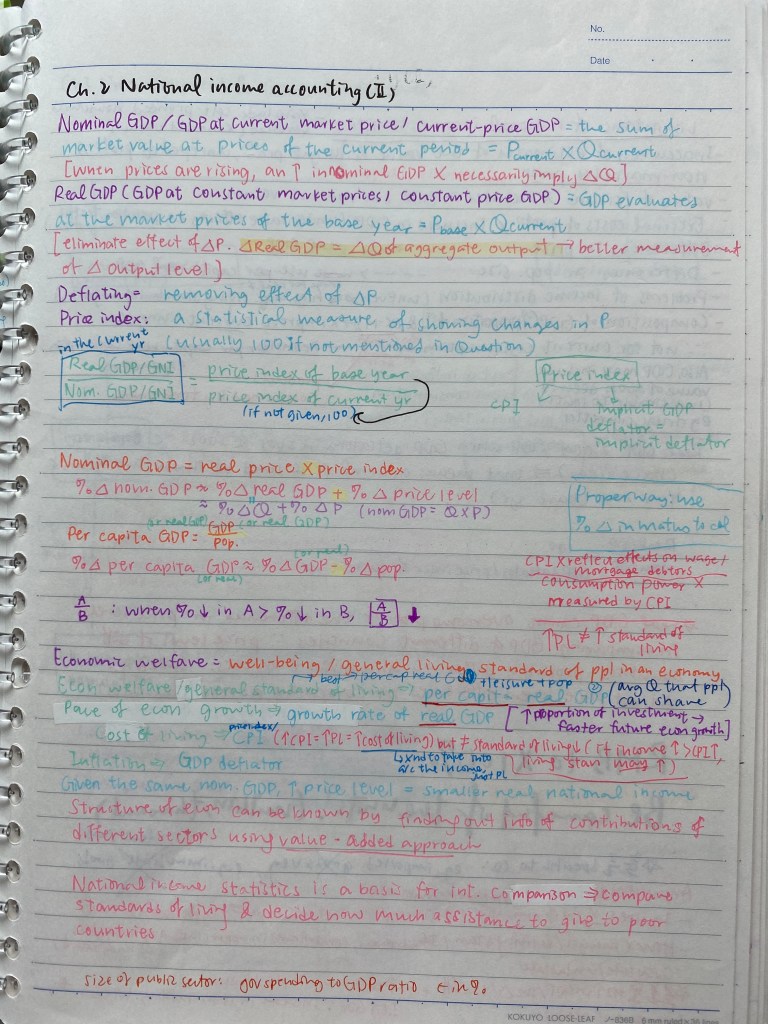 No.
Date
Ch. 2 National income accounting (II)
Nominal GDP / GDP at current market price / current-price GDP = the sum of
market value at prices of the current period = Pcurrent X Qcurrent
[when prices are rising, an ↑ in nominal GDP X necessarily imply ΔQ]
Real GDP (GDP at constant market prices / constant price GDP) = GDP evaluates
at the market prices of the base year = Pbase X Qcurrent
[eliminate effect of ΔP. ΔReal GDP = ΔQ of aggregate output → better measurement
of Δ output level]
Deflating = removing effect of ΔP
Price index: a statistical measure of showing changes in P
in the current yr (usually 100 if not mentioned in Question)
Real GDP/GNI / Nom. GDP/GNI = price index of base year / price index of current yr
(if not given, 100)
Price index
CPI
implicit GDP
deflator =
implicit deflator
Nominal GDP = real price X price index
% Δ nom. GDP ≈ % Δ real GDP + % Δ price level
≈ % ΔQ + % ΔP (nom GDP = Q X P)
Proper way: use
% Δ in to cal
(or real GDP) (or real GDP)
Per capita GDP = GDP / Pop.
(or real)
% Δ per capita GDP ≈ % Δ GDP - % Δ pop.
(or real)
CPI X reflect effects on wage /
mortgage debtors
consumption power X
measured by CPI
A/B : when % ↓ in A > % ↓ in B, A/B ↓
↑PL ≠ ↑ standard of
living
Economic welfare = well-being / general living standard of ppl in an economy
→ best → per cap real GDP + leisure + pop
Econ welfare / general standard of living ⇒ per capita real GDP (avg Q that ppl can share)
Pace of econ growth ⇒ growth rate of real GDP [↑ proportion of investment →
faster future econ growth]
price index/
Cost of living ⇒ CPI (↑CPI = ↑PL = ↑cost of living) but ≠ standard of living ↓ (if income ↑ > CPI ↑,
living stan may ↑)
↳ X nd to take into
a/c the income, not PL
Inflation ⇒ GDP deflator
Given the same nom. GDP, ↑ price level = smaller real national income
Structure of econ can be known by finding out info of contributions of
different sectors using value-added approach
National income statistics is a basis for int. comparison ⇒ compare
standards of living & decide how much assistance to give to poor
countries
size of public sector: gov spending to GDP ratio ← in %.
KOKUYO LOOSE-LEAF